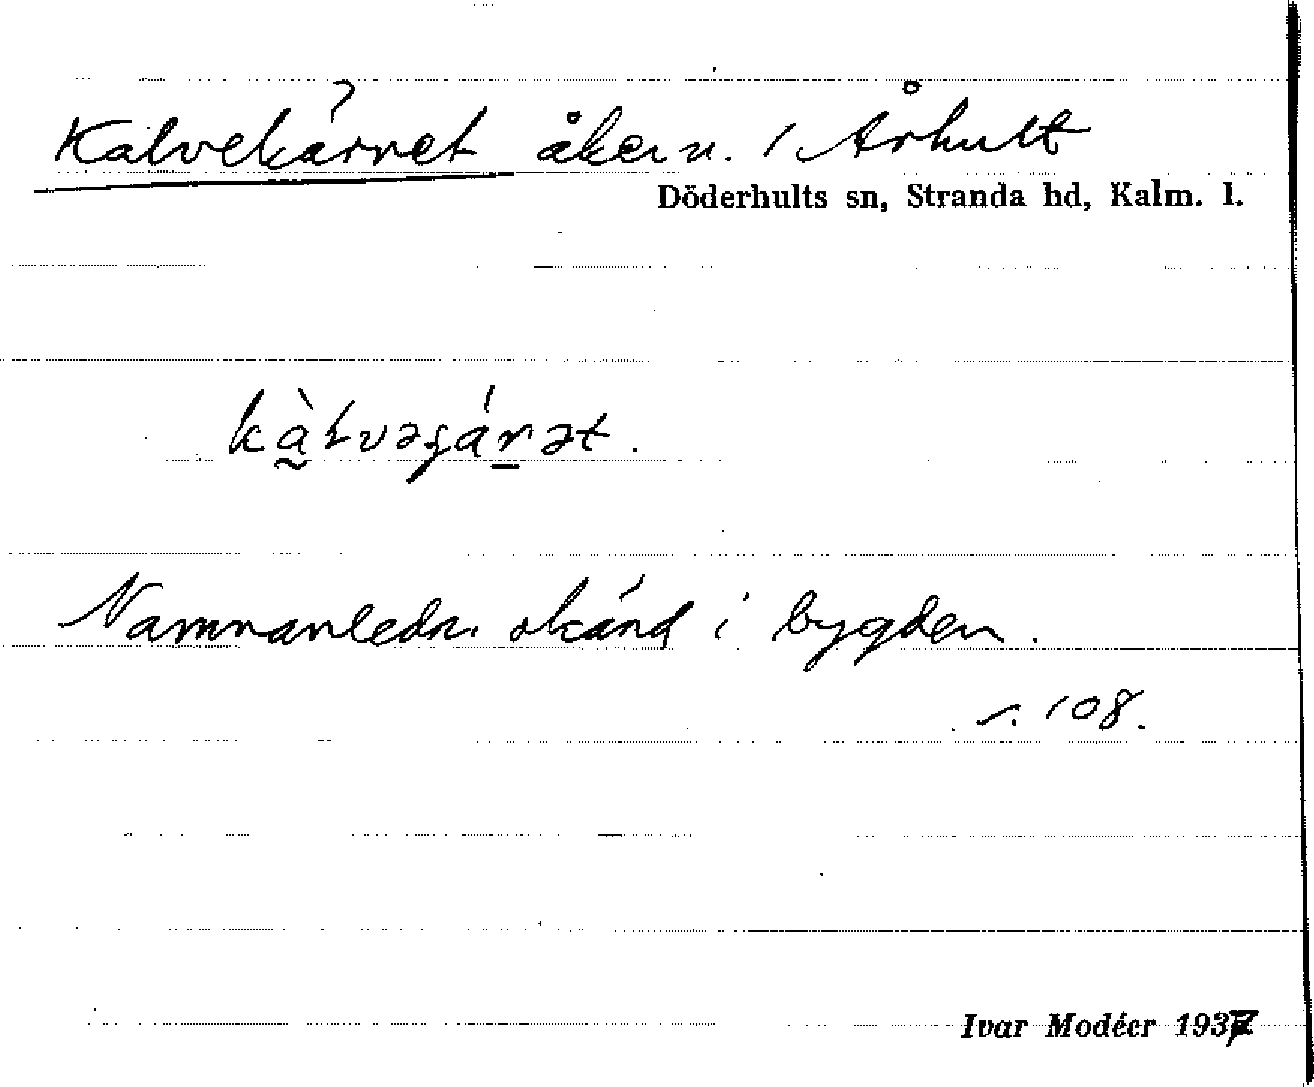 Kalvekärret åkern. i Århult
Döderhults sn, Stranda hd, Kalm. l.
Namnanledn. okänd i bygden.
s. 108.
Ivar Modéer 1937